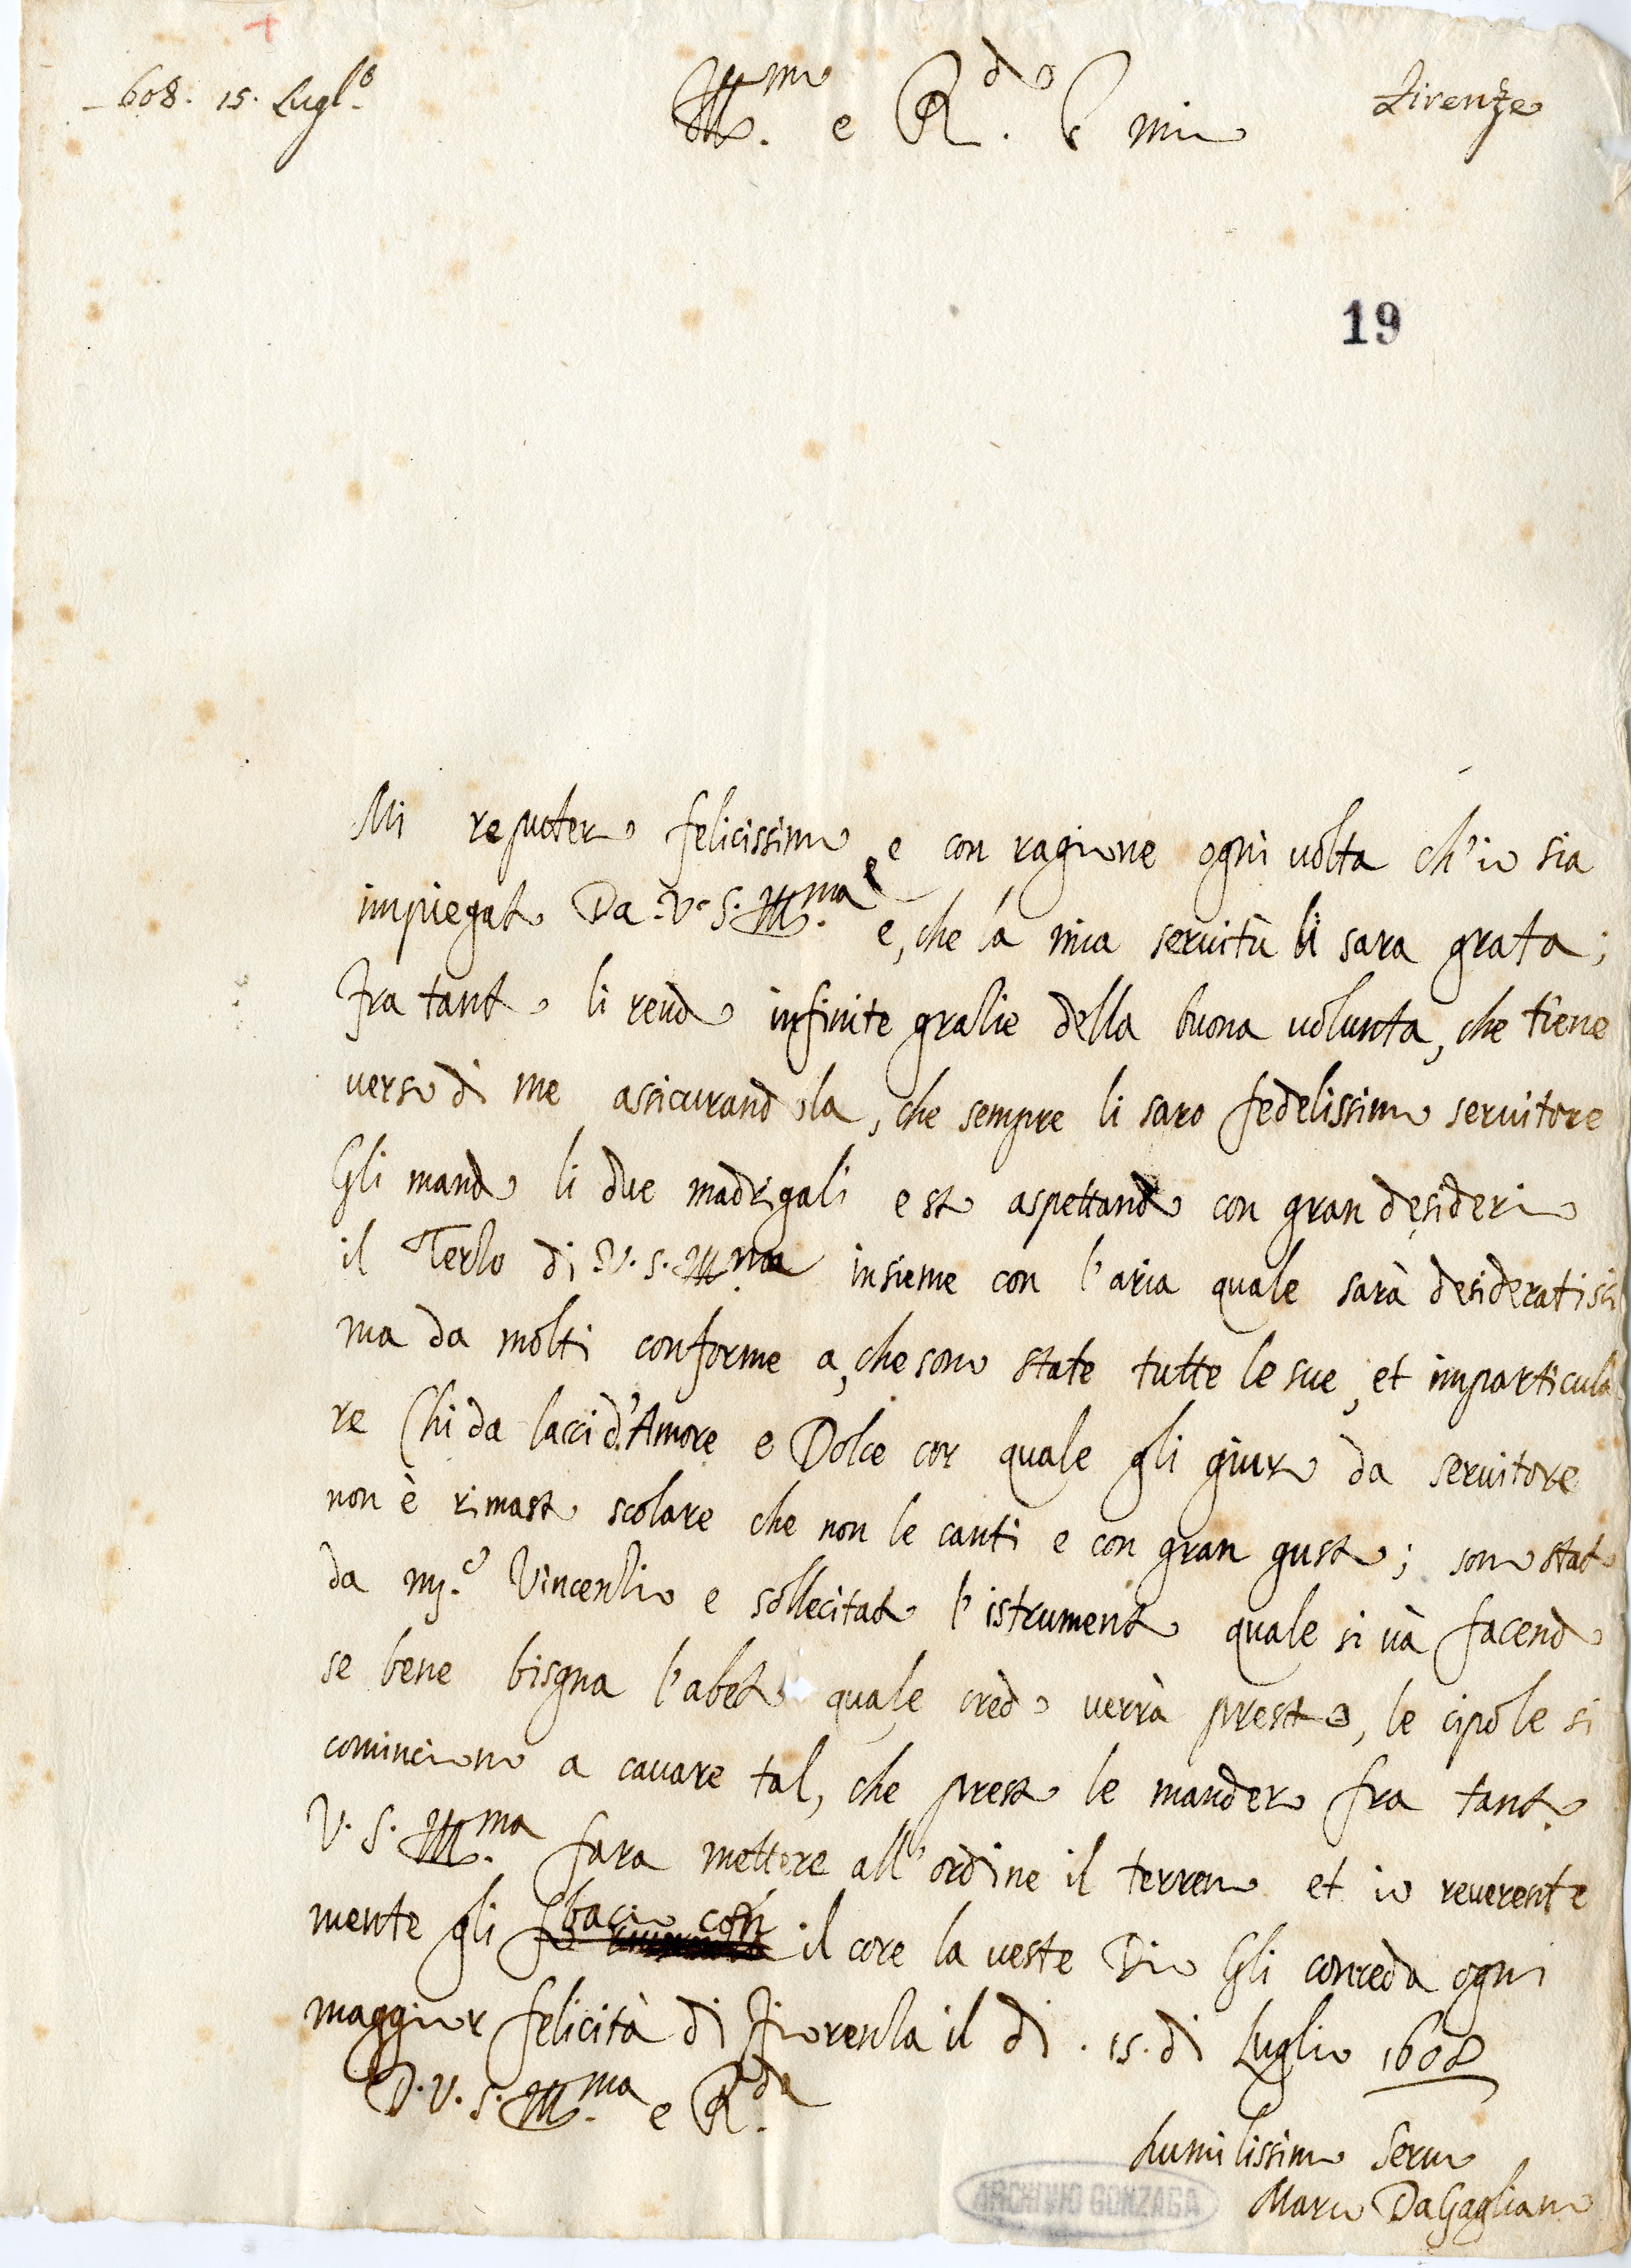 608. 15. Lugl.o
Ill.mo e R.do S mio
Firenze
19
Mi reputero felicissimo e con ragione ogni volta ch'io sia
impiegato Da V. S. Ill.ma e, che la mia servitù li sara grata;
fra tanto li rendo infinite grazie della buona volunta, che tiene
verso di me assicurandola, che sempre li saro fedelissimo servitore
Gli mando li due madrigali e sto aspettando con gran desiderio
il Terzo di V. S. Ill.ma insieme con l'aria quale sarà desideratissi
ma da molti conforme a, che sono state tutte le sue, et imparticula
re Chi da lacci d'Amore e Dolce cor quale gli giuro da servitore
non è rimasto scolare che non le canti e con gran gusto; sono stato
da m.o Vincenzio e sollecitato l'istrumento quale si và facendo
se bene bisgna l'abeto quale credo verrà presto, le cipole si
cominciono a cavare tal, che presto le mandero fra tanto
V. S. Ill.ma fara mettere all'ordine il terreno et io reverente
mente gli bacio con il core la veste Dio Gli conceda ogni
maggior felicità di Fiorenza il dì. 15. di Luglio 1608
D. V. S. Ill.ma e R.da
humilissimo Servo
Marco Da Gagliano
ARCHIVIO GONZAGA